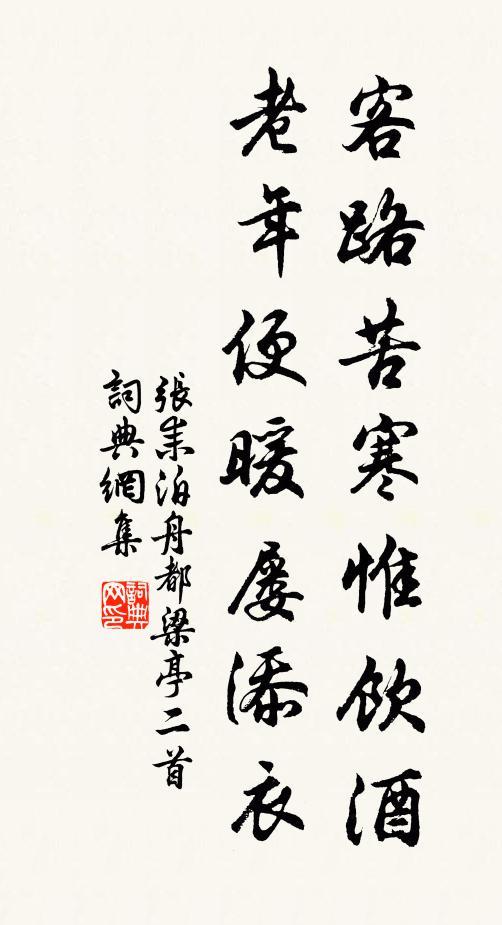 客路苦寒惟飲酒
老年便暖屡添衣
張耒泊舟都梁亭二首
詞典網集
詞典
网印